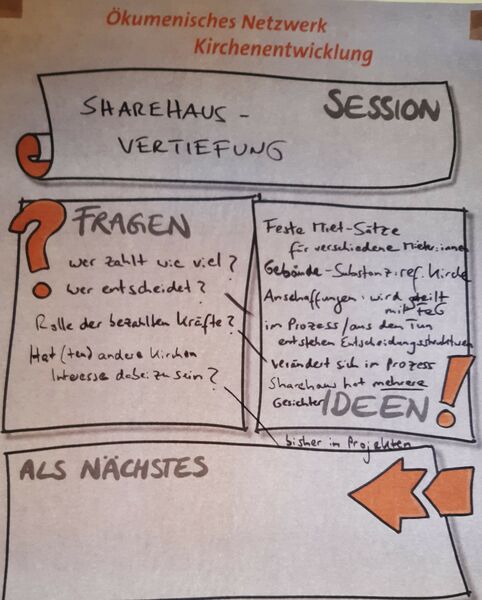 Ökumenisches Netzwerk
Kirchenentwicklung
SESSION
SHAREHAUS -
VERTIEFUNG
? FRAGEN
wer zahlt wie viel?
wer entscheidet?
Rolle der bezahlten Kräfte?
Hat(ten) andere Kirchen
Interesse dabei zu sein?
Feste Miet-Sätze
für verschiedene Mieter:innen
Gebäude-Substanz: ref. Kirche
Anschaffungen: wird geteilt
mit
im Prozess / aus dem Tun
entstehen Entscheidungsstrukturen
verändert sich im Prozess
Sharehaus hat mehrere
Gesichter
IDEEN !
bisher in Projekten
ALS NÄCHSTES